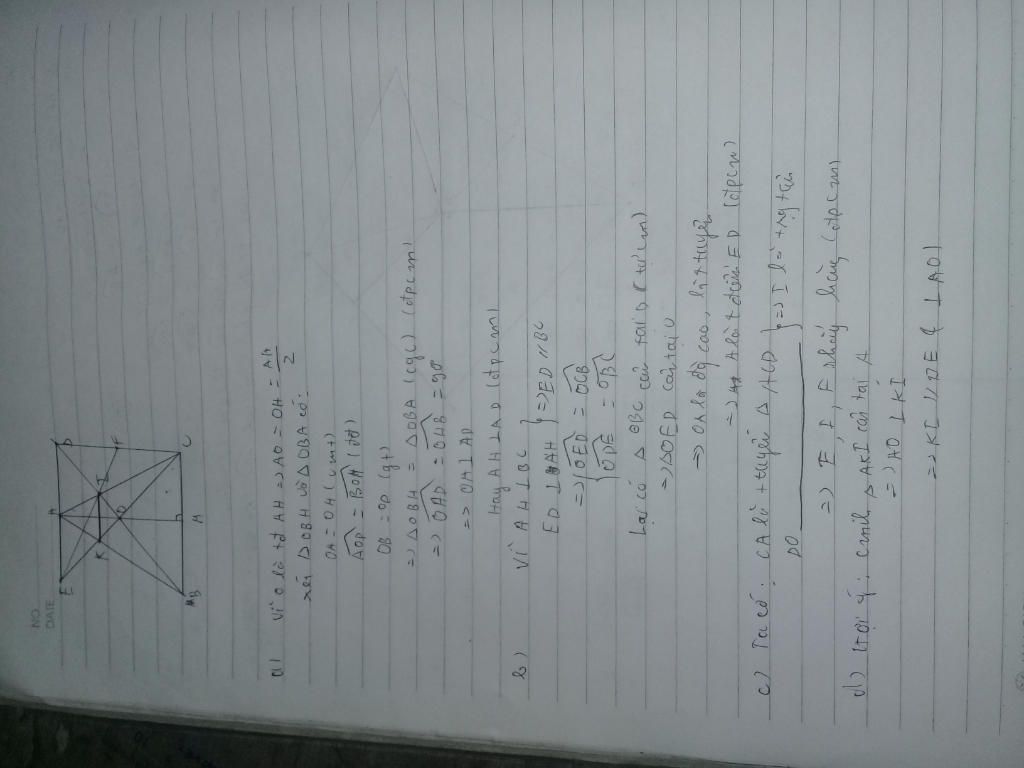 NO.
DATE
E A D
K I F
O
B H C
a) Vì O là tđ AH => AO = OH = AH/2
xét Δ OBH và Δ ODA có:
OA = OH (cmt)
AOD = BOH (đđ)
OB = OD (gt)
=> Δ OBH = Δ ODA (cgc) (đpcm)
=> OAD = OHB = 90°
=> OA ⊥ AD
Hay AH ⊥ AD (đpcm)
b) Vì AH ⊥ BC
ED ⊥ AH } => ED // BC
=> { OED = OCB
ODE = OBC
Lại có Δ OBC cân tại O
=> Δ OED cân tại O
=> OA là đg cao, là t tuyến
=> A là t điểm ED (đpcm)
c) Ta có: CA là t tuyến Δ
DO } => I là trg
=> E, I, F thẳng hàng (đpcm)
d) (Gợi ý: Cminh Δ AKI cân tại A
=> AO ⊥ KI
=> KI // DE ( ⊥ AO)